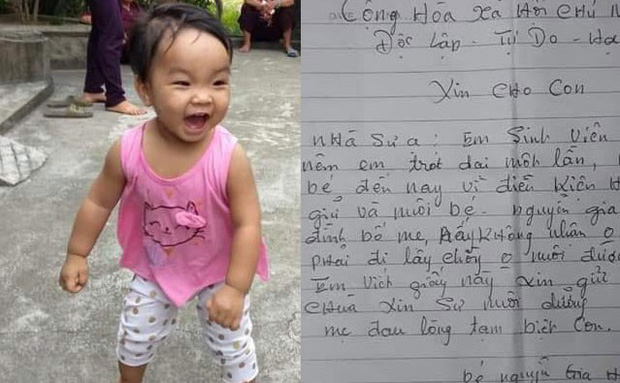 Cộng Hòa xã hội chủ N
Độc Lập - Tự Do - Hạ
Xin cho con
nhà sư ạ: Em sinh viên
nêm em trót dại một lần,
bé đến nay vì điều kiên
giữ và nuôi bé. nguyễn gia
đình bố mẹ, không nhân
phải đi lấy chồng o nuôi được
Em viết giấy này xin gửi
chùa xin sư nuôi dưỡng
mẹ đau lòng tạm biệt con.
bé nguyễn gia H